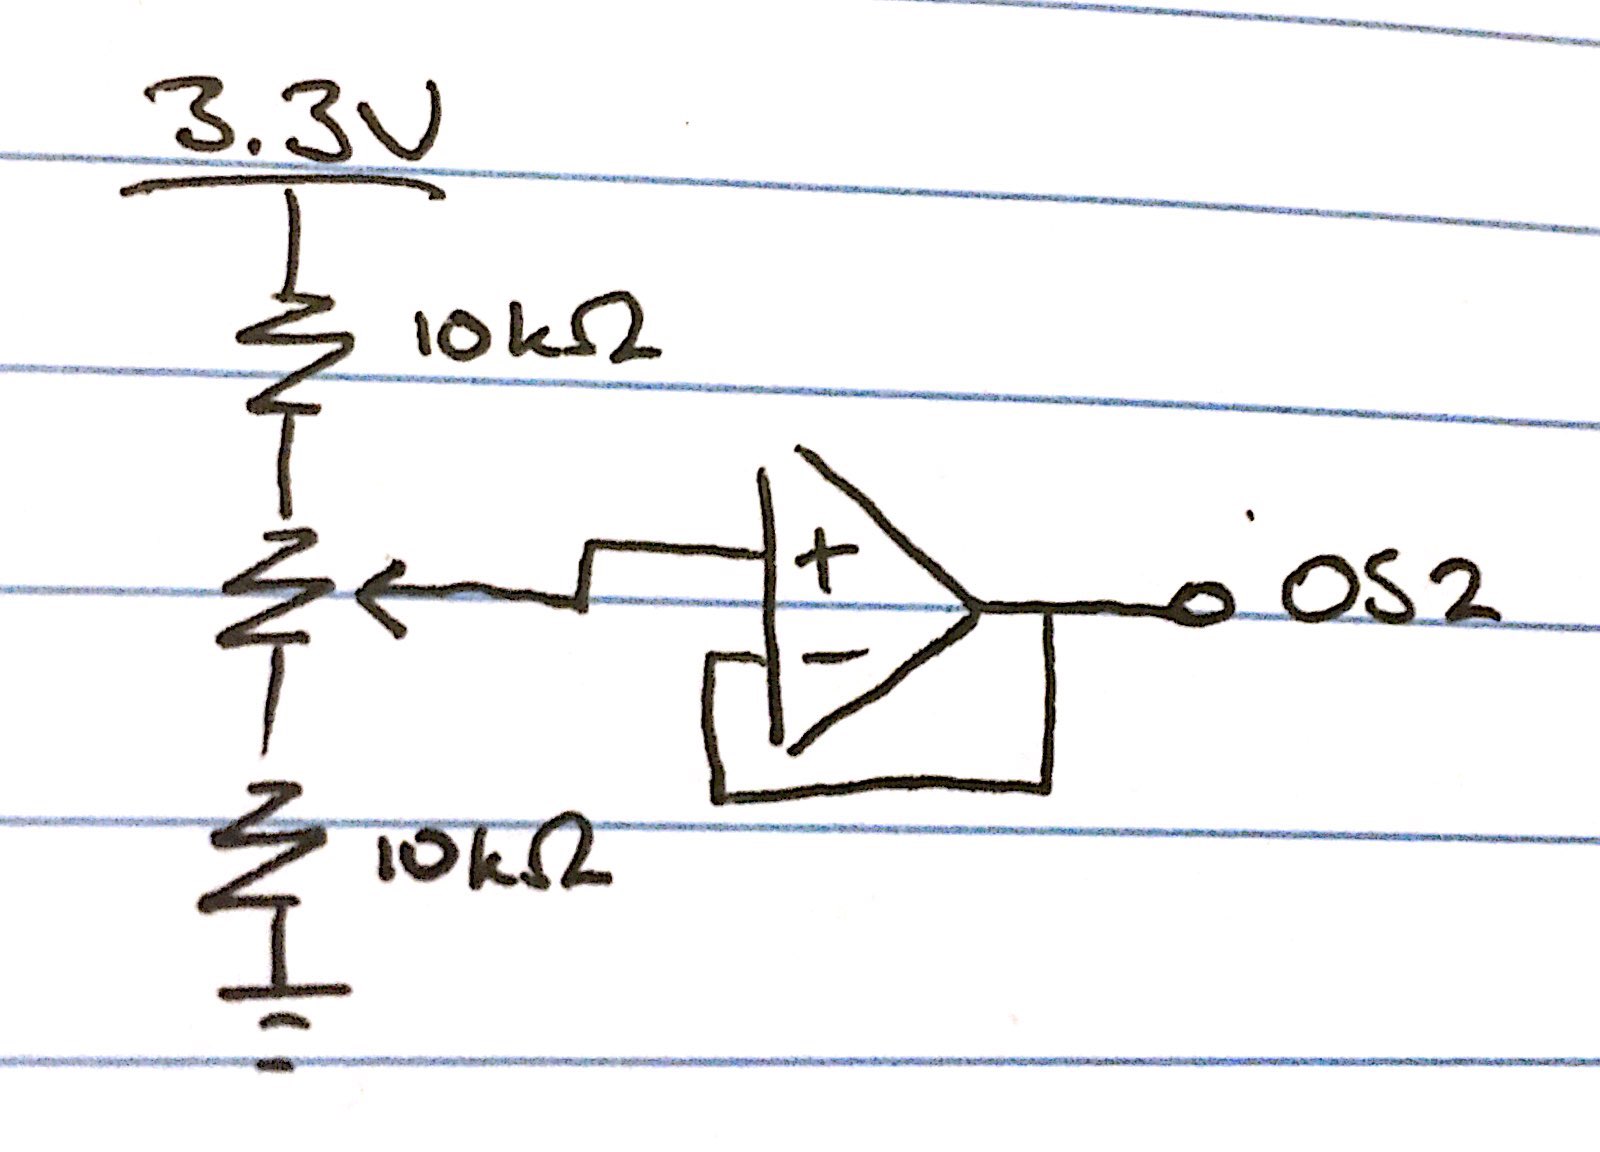 3.3V
10kΩ
+
OS2
−
10kΩ